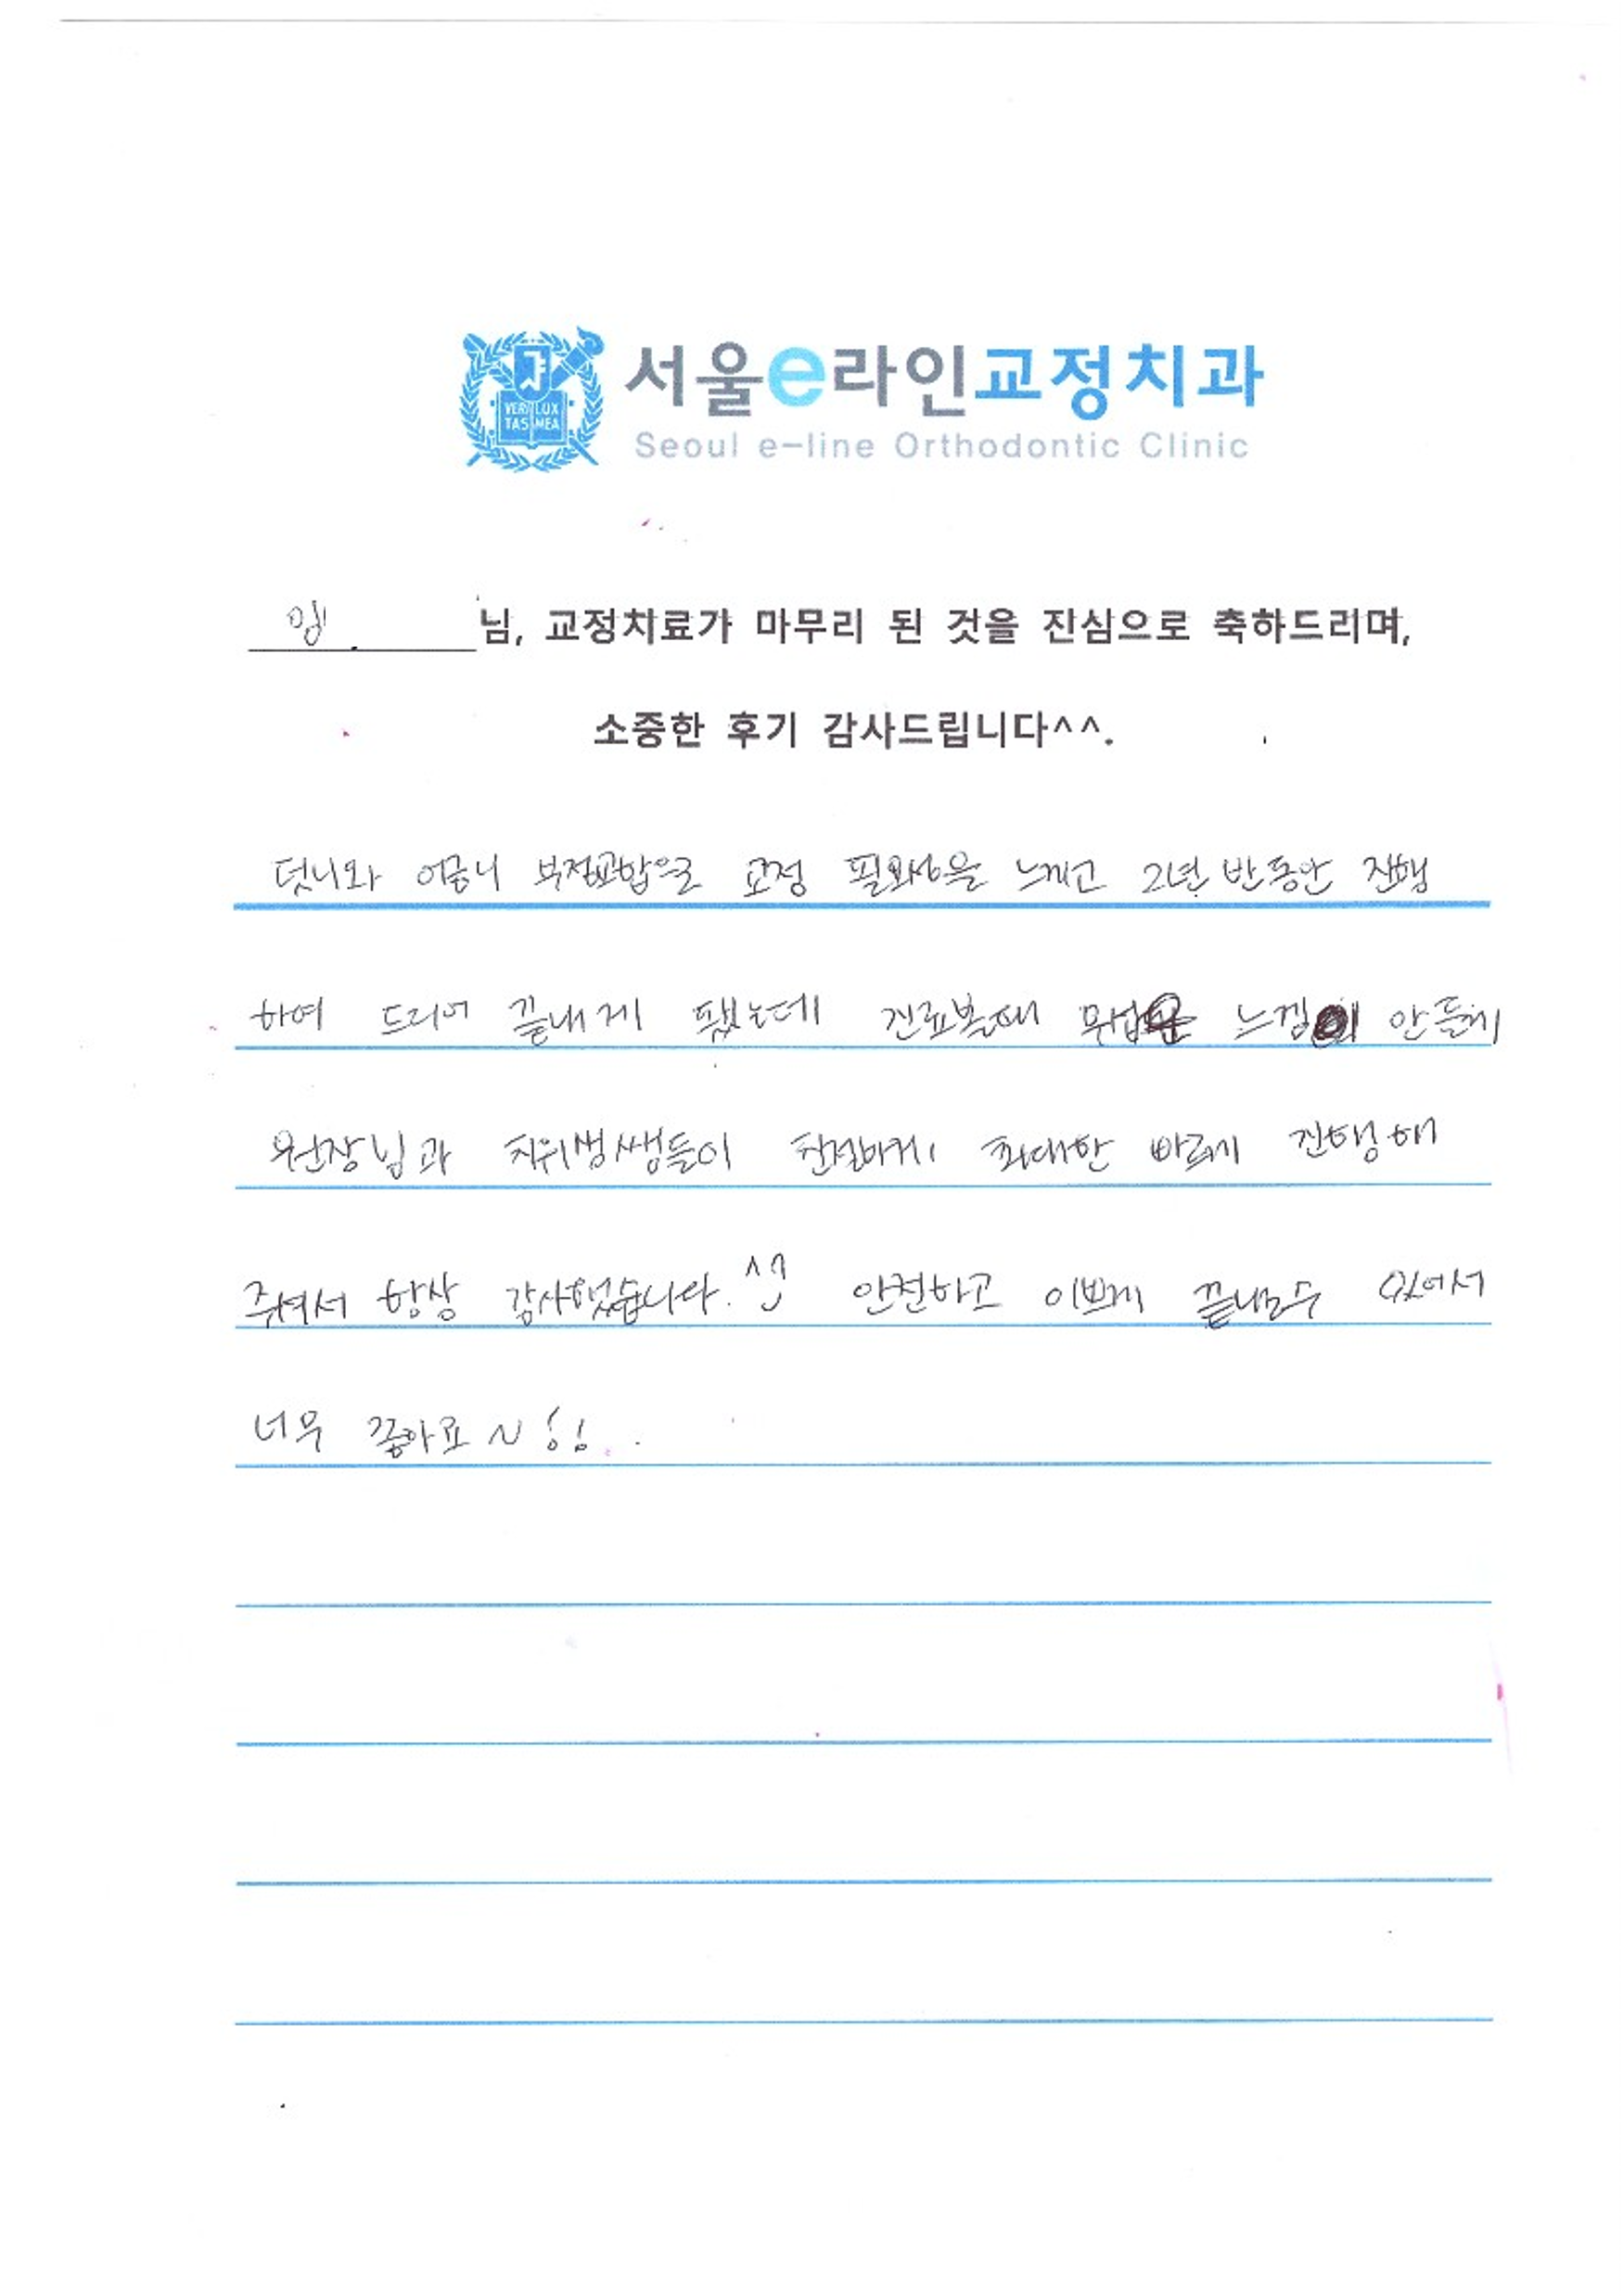 VERI LUX
TAS MEA
서울e라인교정치과
Seoul e-line Orthodontic Clinic
임 님, 교정치료가 마무리 된 것을 진심으로 축하드리며,
소중한 후기 감사드립니다^^.
덧니와 어금니 부정교합으로 교정 필요성을 느끼고 2년 반동안 진행
하여 드디어 끝내게 됐는데 진료볼때 무섭 느낌이 안들게
원장님과 치위생쌤들이 친절하게 최대한 빠르게 진행해
주셔서 항상 감사했습니다. 안전하고 이쁘게 끝낼수 있어서
너무 좋아요~!!